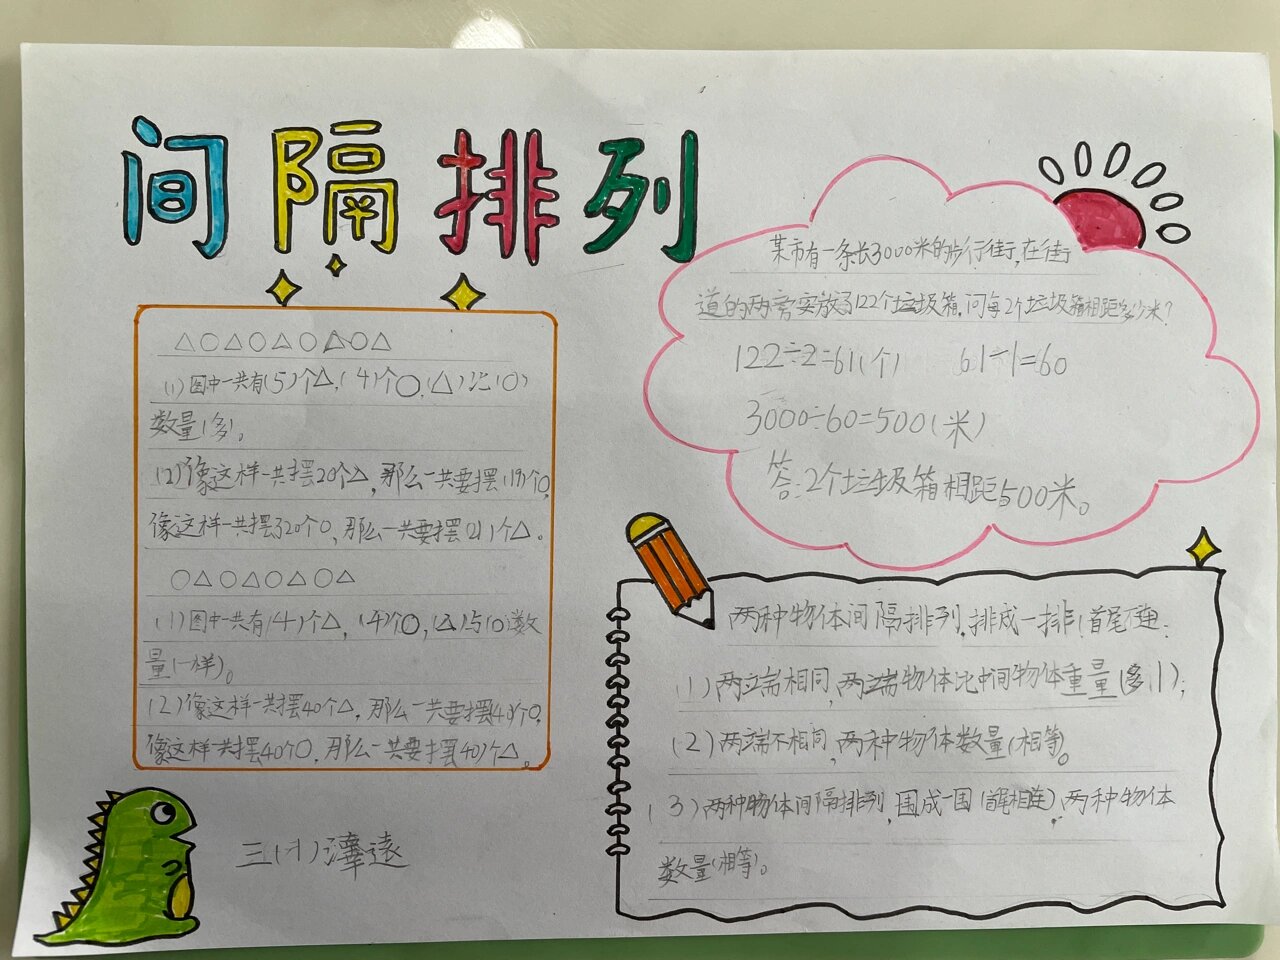 间隔排列
△○△○△○△○△
(1)图中一共有(5)个△,(4)个○,(△)比(○)
数量(多)。
(2)像这样一共摆20个△,那么一共要摆(19)个○,
像这样一共摆了20个○,那么一共要摆(21)个△。
○△○△○△○△
(1)图中一共有(4)个△,(4)个○,(△)与(○)数
量(一样)。
(2)像这样一共摆40个△,那么一共要摆(40)个○,
像这样一共摆40个○,那么一共要摆(40)个△。
某市有一条长3000米的步行街,在街
道的两旁安放了122个垃圾箱,问每2个垃圾箱相距多少米?
122÷2=61(个) 61-1=60
3000÷60=500(米)
答:2个垃圾箱相距500米。
两种物体间隔排列,排成一排(首尾不连:
(1)两端相同,两端物体比中间物体重量(多1);
(2)两端不相同,两种物体数量(相等。
(3)两种物体间隔排列,围成一国(首尾相连),两种物体
数量(相等)。
三(1)